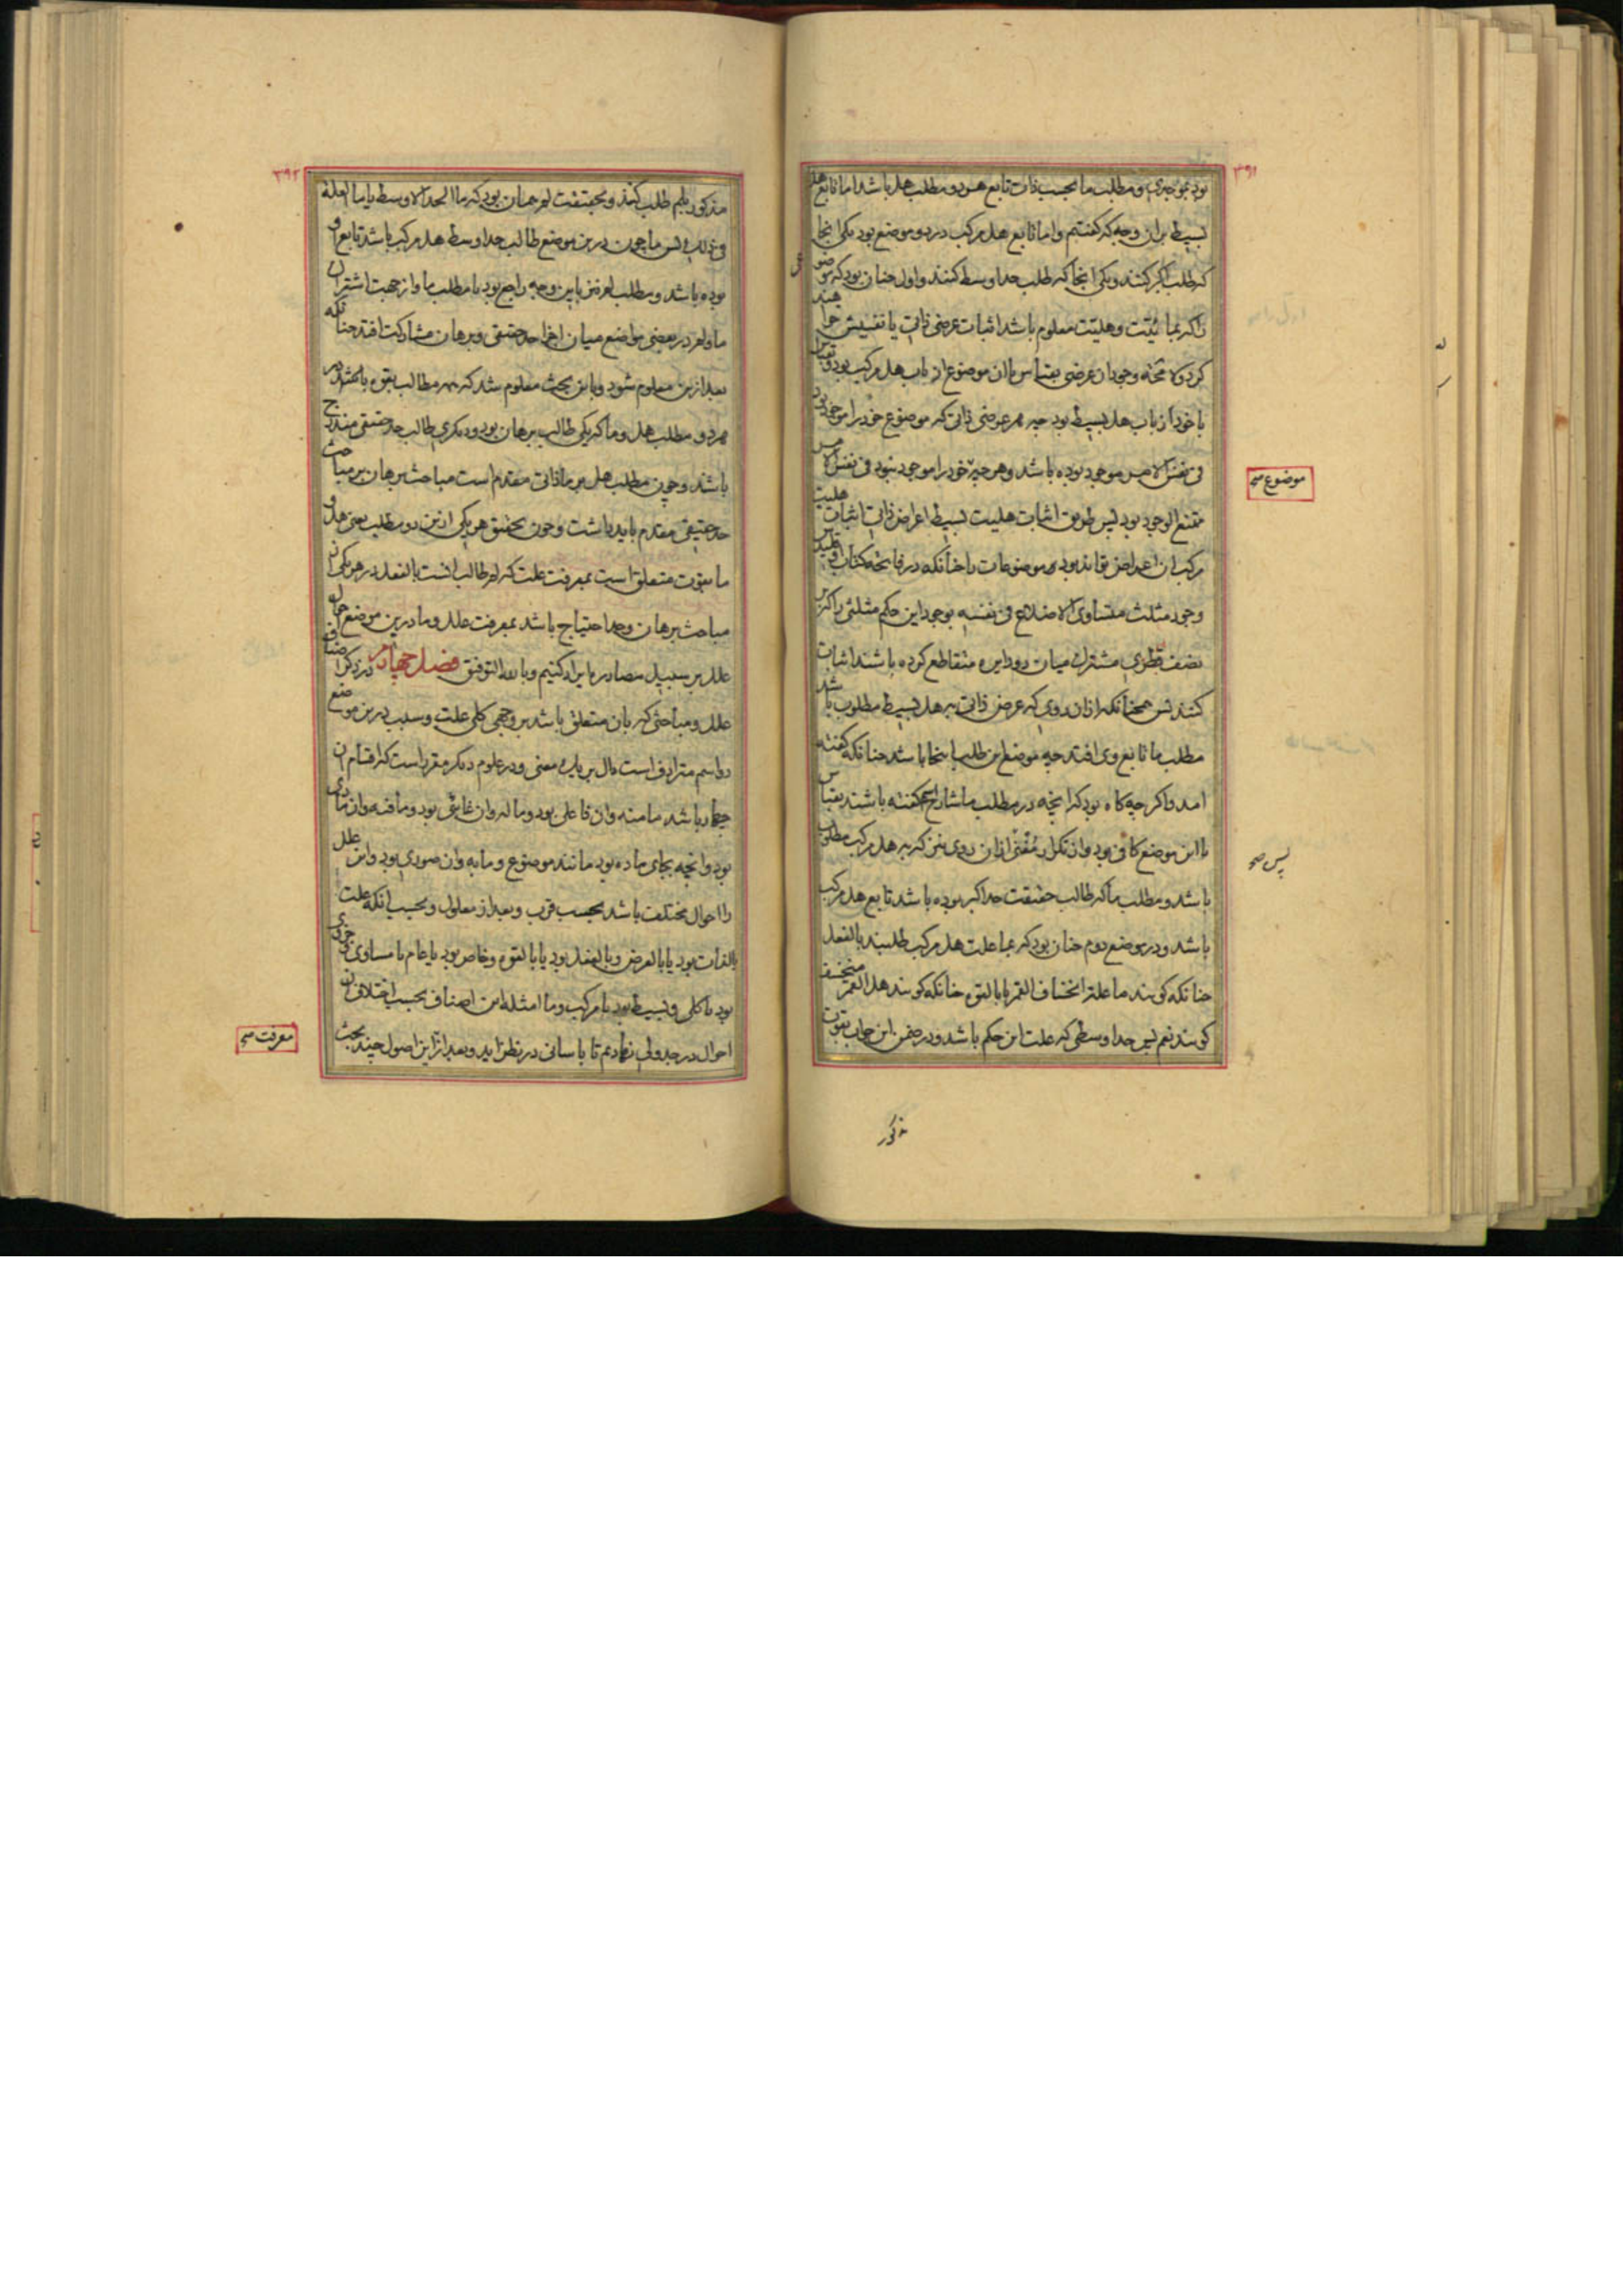 ۳۹۱
بود بموجودی و مطلب ما بحسب ذات تابع هر دو مطلب هل باشد اما تابع هل
بسیط بران وجه که گفتیم و اما تابع هل مرکب در دو موضع بود یکی انجا
که طلب اکبر کنند و یکی انجا که طلب حد اوسط کنند و اول چنان بود که موضوعی
را که بمائیت و هلیت معلوم باشد اثبات عرضی ذاتی یا نفیش خواهند
کرد و لا محاله وجود ان عرضی بقیاس با ان موضوع از باب هل مرکب بود و بقیاس
با خود از باب هل بسیط بود چه هر عرضی ذاتی که موضوع خود را موجود بود
فی نفس الامر موجود بوده باشد و هر چه خود را موجود نبود فی نفس الامر
ممتنع الوجود بود پس طریق اثبات هلیت بسیط اعراض ذاتی اثبات هلیت
مرکب ان اعراض تواند بود موضوعات را چنانکه در فاتحه کتاب اقلیدس
موضوع صح
وجود مثلث متساوی الاضلاع فی نفسه بوجود این حکم مثلثی را که بر
نصف قطری مشترک میان دو دایره متقاطع کرده باشند اثبات
کنند پس همچنانکه ازان روی که عرض ذاتی به هل بسیط مطلوب باشد
مطلب ما تابع وی افتد چه موضع این طلب اینجا باشد چنانکه گفته
امد و اگر چه گاه بود که انچه در مطلب ما شارح اسم گفته باشند بقیاس
با این موضع کافی بود و از تکرار مغنی ازان روی نیز که به هل مرکب مطلوب
پس صح
باشد و مطلب ما که طالب حقیقت حد اکبر بوده باشد تابع هل مرکب
باشد و در موضع دوم چنان بود که بما علت هل مرکب طلبند بالفعل
چنانکه گویند ما علة انخساف القمر یا بالقوه چنانکه گویند هل القمر منخسف
گویند نعم پس حد اوسطی که علت این حکم باشد و در ضمن این جواب بقوت
مذکور
۳۹۲
مذکور بلم طلب کنند و بحقیقت لم همان بود که ما الحد الاوسط یا ما العلة
فی ذلک پس ما چون درین موضع طالب حد اوسط هل مرکب باشد تابع او
بوده باشد و مطلب لم نیز باین وجه راجع بود با مطلب ما و از جهت اشتراک
ما و لم در بعضی مواضع میان اجزا حد حقیقی و برهان مشارکت افتد چنانکه
بعد ازین معلوم شود و باین بحث معلوم شد که همه مطالب بقوه با
هر دو مطلب هل و ما که یکی طالب برهان بود و دیگری طالب حد حقیقی مندرج
باشند و چون مطلب هل بر ما ذاتی مقدم است مباحث برهان بر مباحث
حد حقیقی مقدم باید داشت و چون تحقیق هر یکی ازین دو مطلب یعنی هل و
ما بقوت متعلق است بمعرفت علت که لم طالب انست بالفعل در هر یکی از
مباحث برهان و حد احتیاج باشد بمعرفت علل و ما درین موضع احوال
علل بر سبیل مصادره ایراد کنیم و بالله التوفیق فصل چهارم در ذکر اصناف
علل و مباحثی که بان متعلق باشد بر وجهی کلی علت و سبب درین موضع
دو اسم مترادف است دال بر یک معنی و در علوم دیگر مقرر است که اقسام ان
چهار باشد ما منه و ان فاعلی بود و ما له و ان غائی بود و ما فیه و ان مادی
بود و انچه بجای ماده بود مانند موضوع و ما به و ان صوری بود و این علل
را احوال مختلف باشد بحسب قرب و بعد از معلول و بحسب انکه علت
بالذات بود یا بالعرض و بالفعل بود یا بالقوه و خاص بود یا عام یا مساوی و جزوی
بود یا کلی و بسیط بود یا مرکب و ما امثله این اصناف بحسب اختلاف ان
احوال در جدولی نهادیم تا باسانی در نظر اید و بعد از این اصول چند بحث
معرفت صح